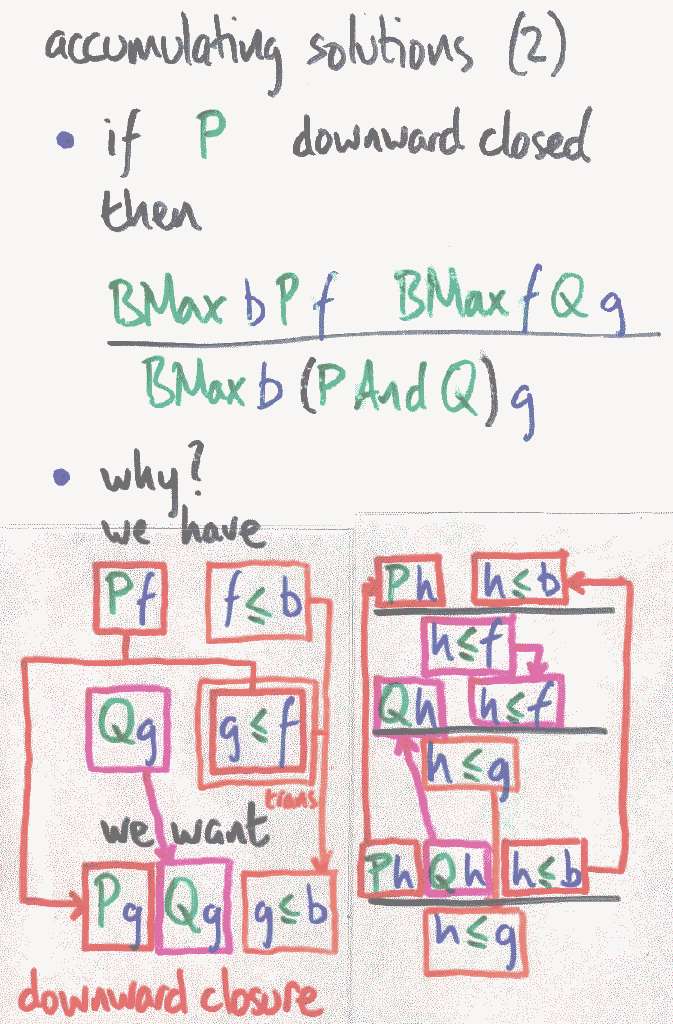 accumulating solutions (2)
• if P downward closed
then
BMax b P f BMax f Q g
BMax b (P And Q) g
• why?
we have
P f f ≤ b
Q g g ≤ f
trans
we want
P g Q g g ≤ b
downward closure
P h h ≤ b
h ≤ f
Q h h ≤ f
h ≤ g
P h Q h h ≤ b
h ≤ g